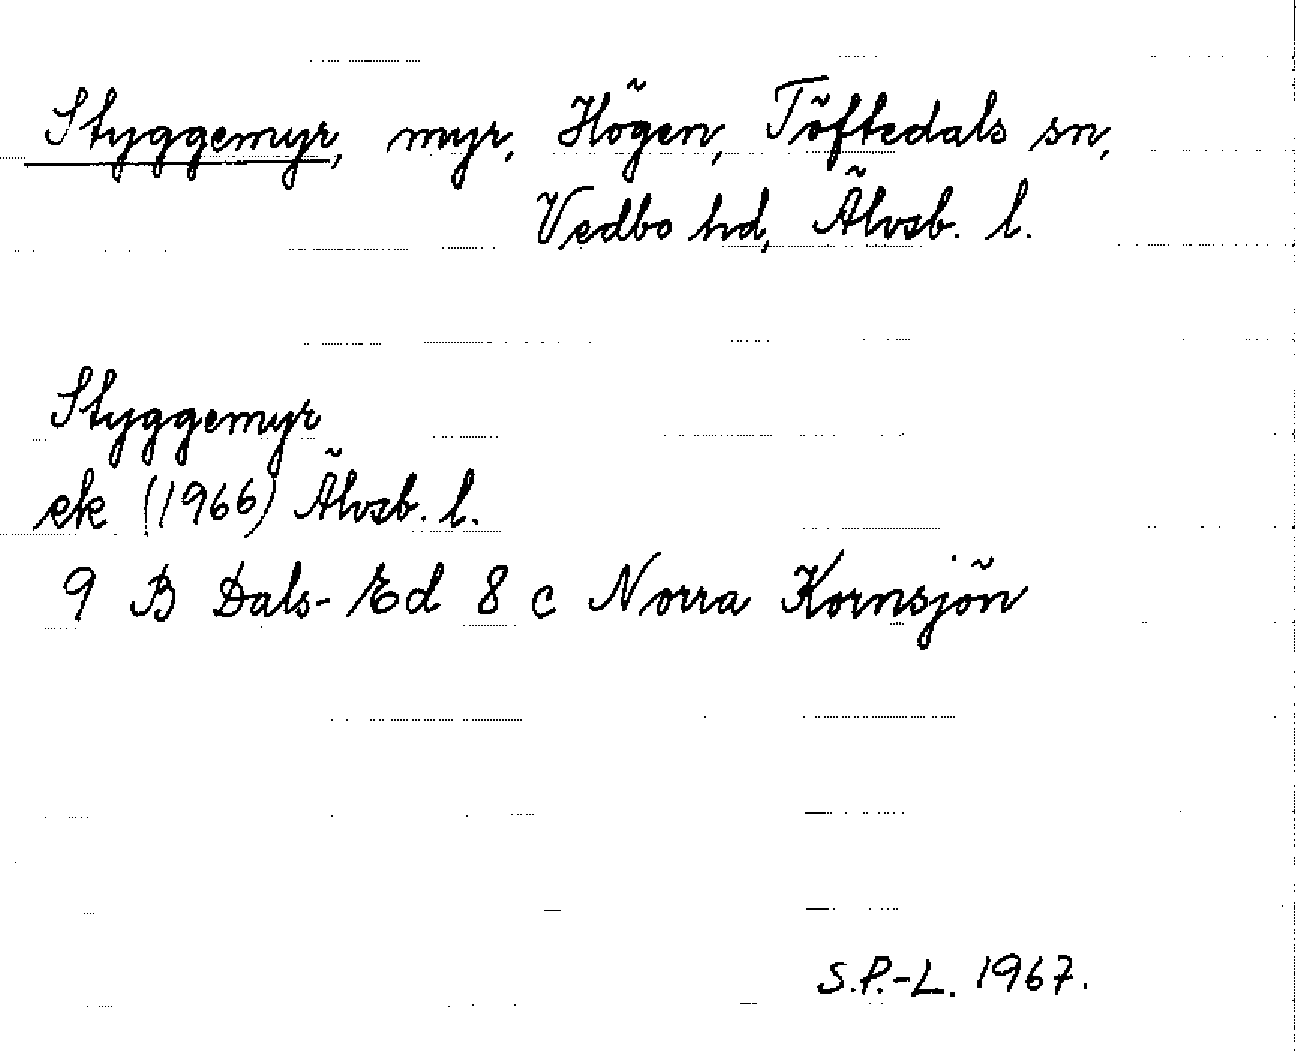 Styggemyr, myr, Högen, Töftedals sn,
Vedbo hd, Älvsb. l.
Styggemyr
ek (1966) Älvsb. l.
9 B Dals-Ed 8 c Norra Kornsjön
S.P.-L. 1967.